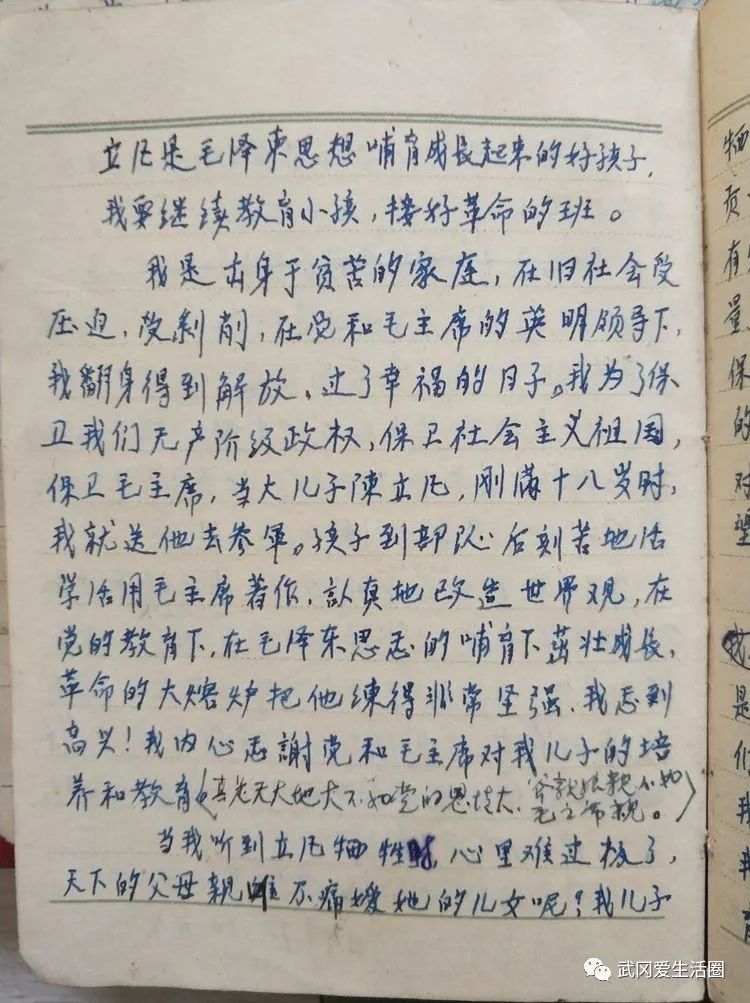 立凡是毛泽东思想哺育成长起来的好孩子,
我要继续教育小孩,接好革命的班。
我是出身于贫苦的家庭,在旧社会受
压迫,受剥削,在党和毛主席的英明领导下,
我翻身得到解放,过了幸福的日子。我为了保
卫我们无产阶级政权,保卫社会主义祖国,
保卫毛主席,当大儿子陳立凡,刚满十八岁时,
我就送他去参军。孩子到部队后刻苦地活
学活用毛主席著作,訫真地改造世界观,在
党的教育下,在毛泽东思想的哺育下茁壮成长,
革命的大熔炉把他练得非常坚强,我感到
高兴!我内心感謝党和毛主席对我儿子的培
养和教育(真是天大地大不如党的恩情大,爹亲娘親不如
毛主席親。)
当我听到立凡牺牲时,心里难过极了,
天下的父母親谁不痛嫒她的儿女呢?我儿子
牺
质
有
量
保
的
对
望
我
是
们
我
我
育
武冈爱生活圈